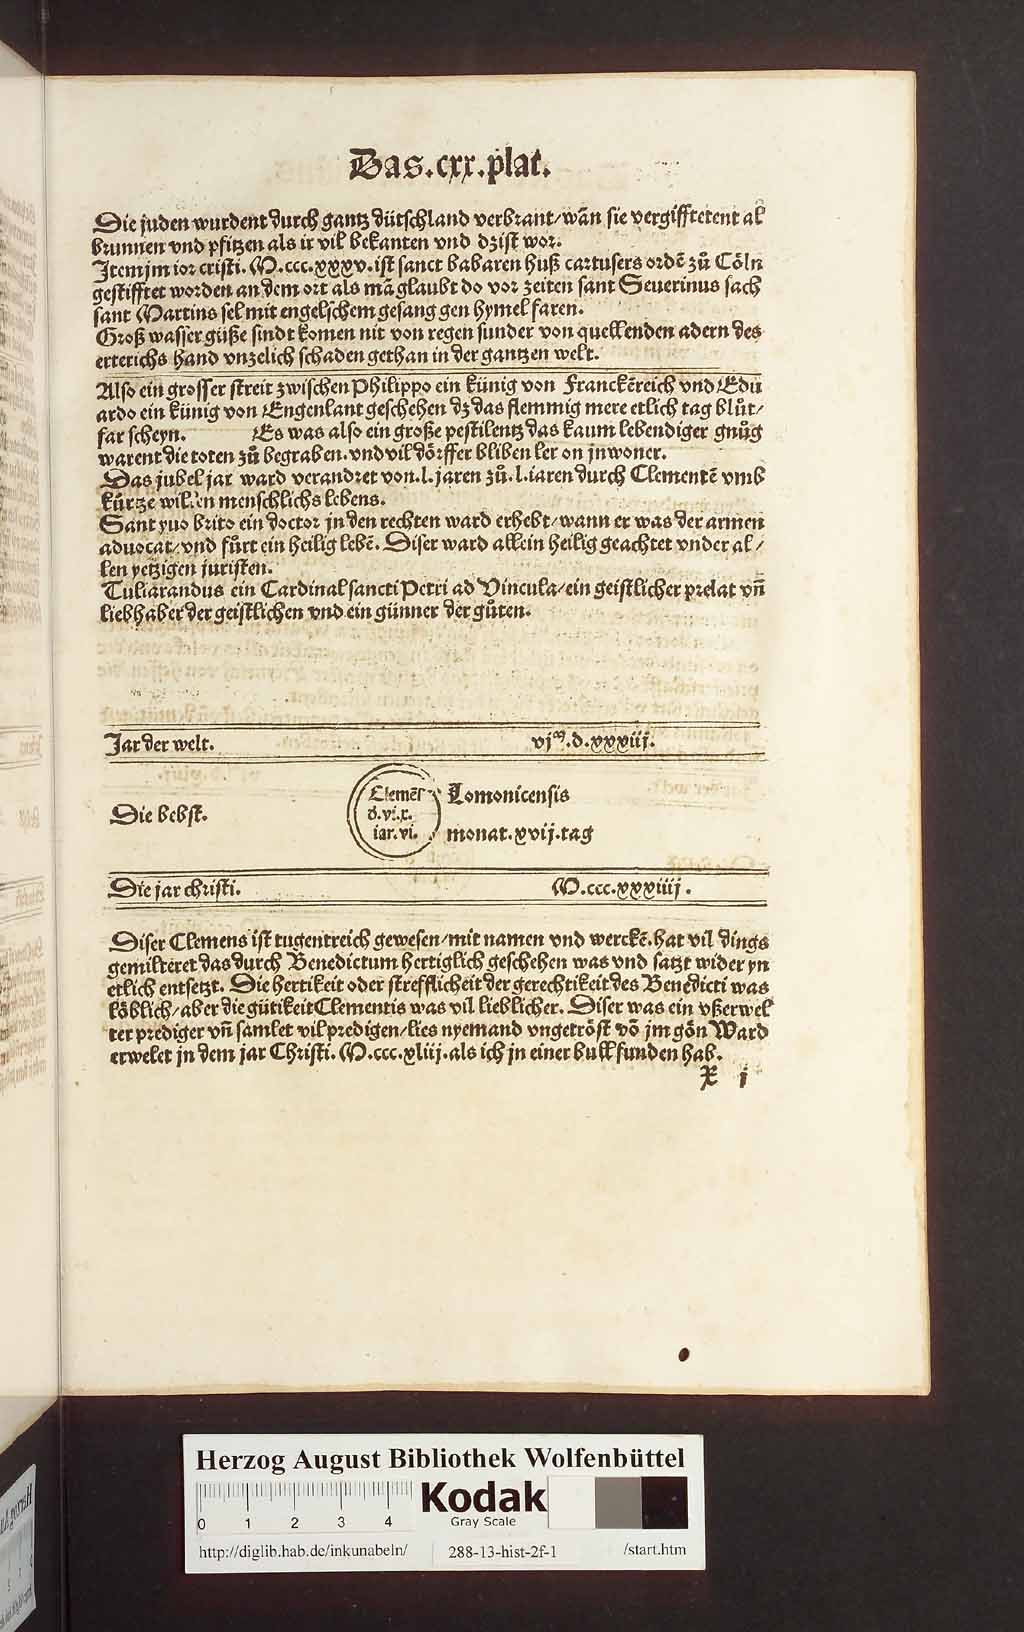 Das.cxx.plat.
Die juden wurdent durch gantz dütschland verbrant/wañ sie vergifftetent al
brunnen vnd pfitzen als ir vil bekanten vnd dz ist wor.
Item jm ior cristi. M.ccc.xxxv.ist sanct babaren huß cartusers ordē zů Cöln
gestifftet worden an dem ort als mā glaubt do vor zeiten sant Seuerinus sach
sant Martins sel mit engelschem gesang gen hymel faren.
Groß wasser güße sindt komen nit von regen sunder von quellenden adern des
erterichs hand vnzelich schaden gethan in der gantzen welt.
Also ein grosser streit zwischen Philippo ein künig von Franckēreich vnd Edu
ardo ein künig von Engenlant geschehen dz das flemmig mere etlich tag blůt/
far scheyn. Es was also ein große pestilentz das kaum lebendiger gnůg
warent die toten zů begraben.vnd vil dörffer bliben ler on jnwoner.
Das jubel jar ward verandret von.l.jaren zů.l.iaren durch Clementē vmb
kůrtze willen menschlichs lebens.
Sant yuo brito ein doctor jn den rechten ward erhebt/wann er was der armen
aduocat/vnd fůrt ein heilig lebē. Diser ward allein heilig geachtet vnder al/
len yetzigen juristen.
Tuliarandus ein Cardinal sancti Petri ad Vincula/ein geistlicher prelat vñ
liebhaber der geistlichen vnd ein günner der gůten.
Jar der welt. vjᵐ.d.xxxiij.
Die bebst. Clemēs d.vi.x. iar.vi. Lomonicensis
monat.xvij.tag
Die jar christi. M.ccc.xxxiiij.
Diser Clemens ist tugentreich gewesen/mit namen vnd werckē.hat vil dings
gemilteret das durch Benedictum hertiglich geschehen was vnd satzt wider yn
etlich entsetzt. Die hertikeit oder strefflicheit der gerechtikeit des Benedicti was
köblich/aber die gütikeit Clementis was vil lieblicher. Diser was ein vßerwel
ter prediger vñ samlet vil predigen/lies nyemand vngetröst vō jm gōn Ward
erwelet jn dem jar Christi. M.ccc.xliij.als ich jn einer bull funden hab.
X j
Herzog August Bibliothek Wolfenbüttel
0 1 2 3 4
Kodak
Gray Scale
http://diglib.hab.de/inkunabeln/ 288-13-hist-2f-1 /start.htm